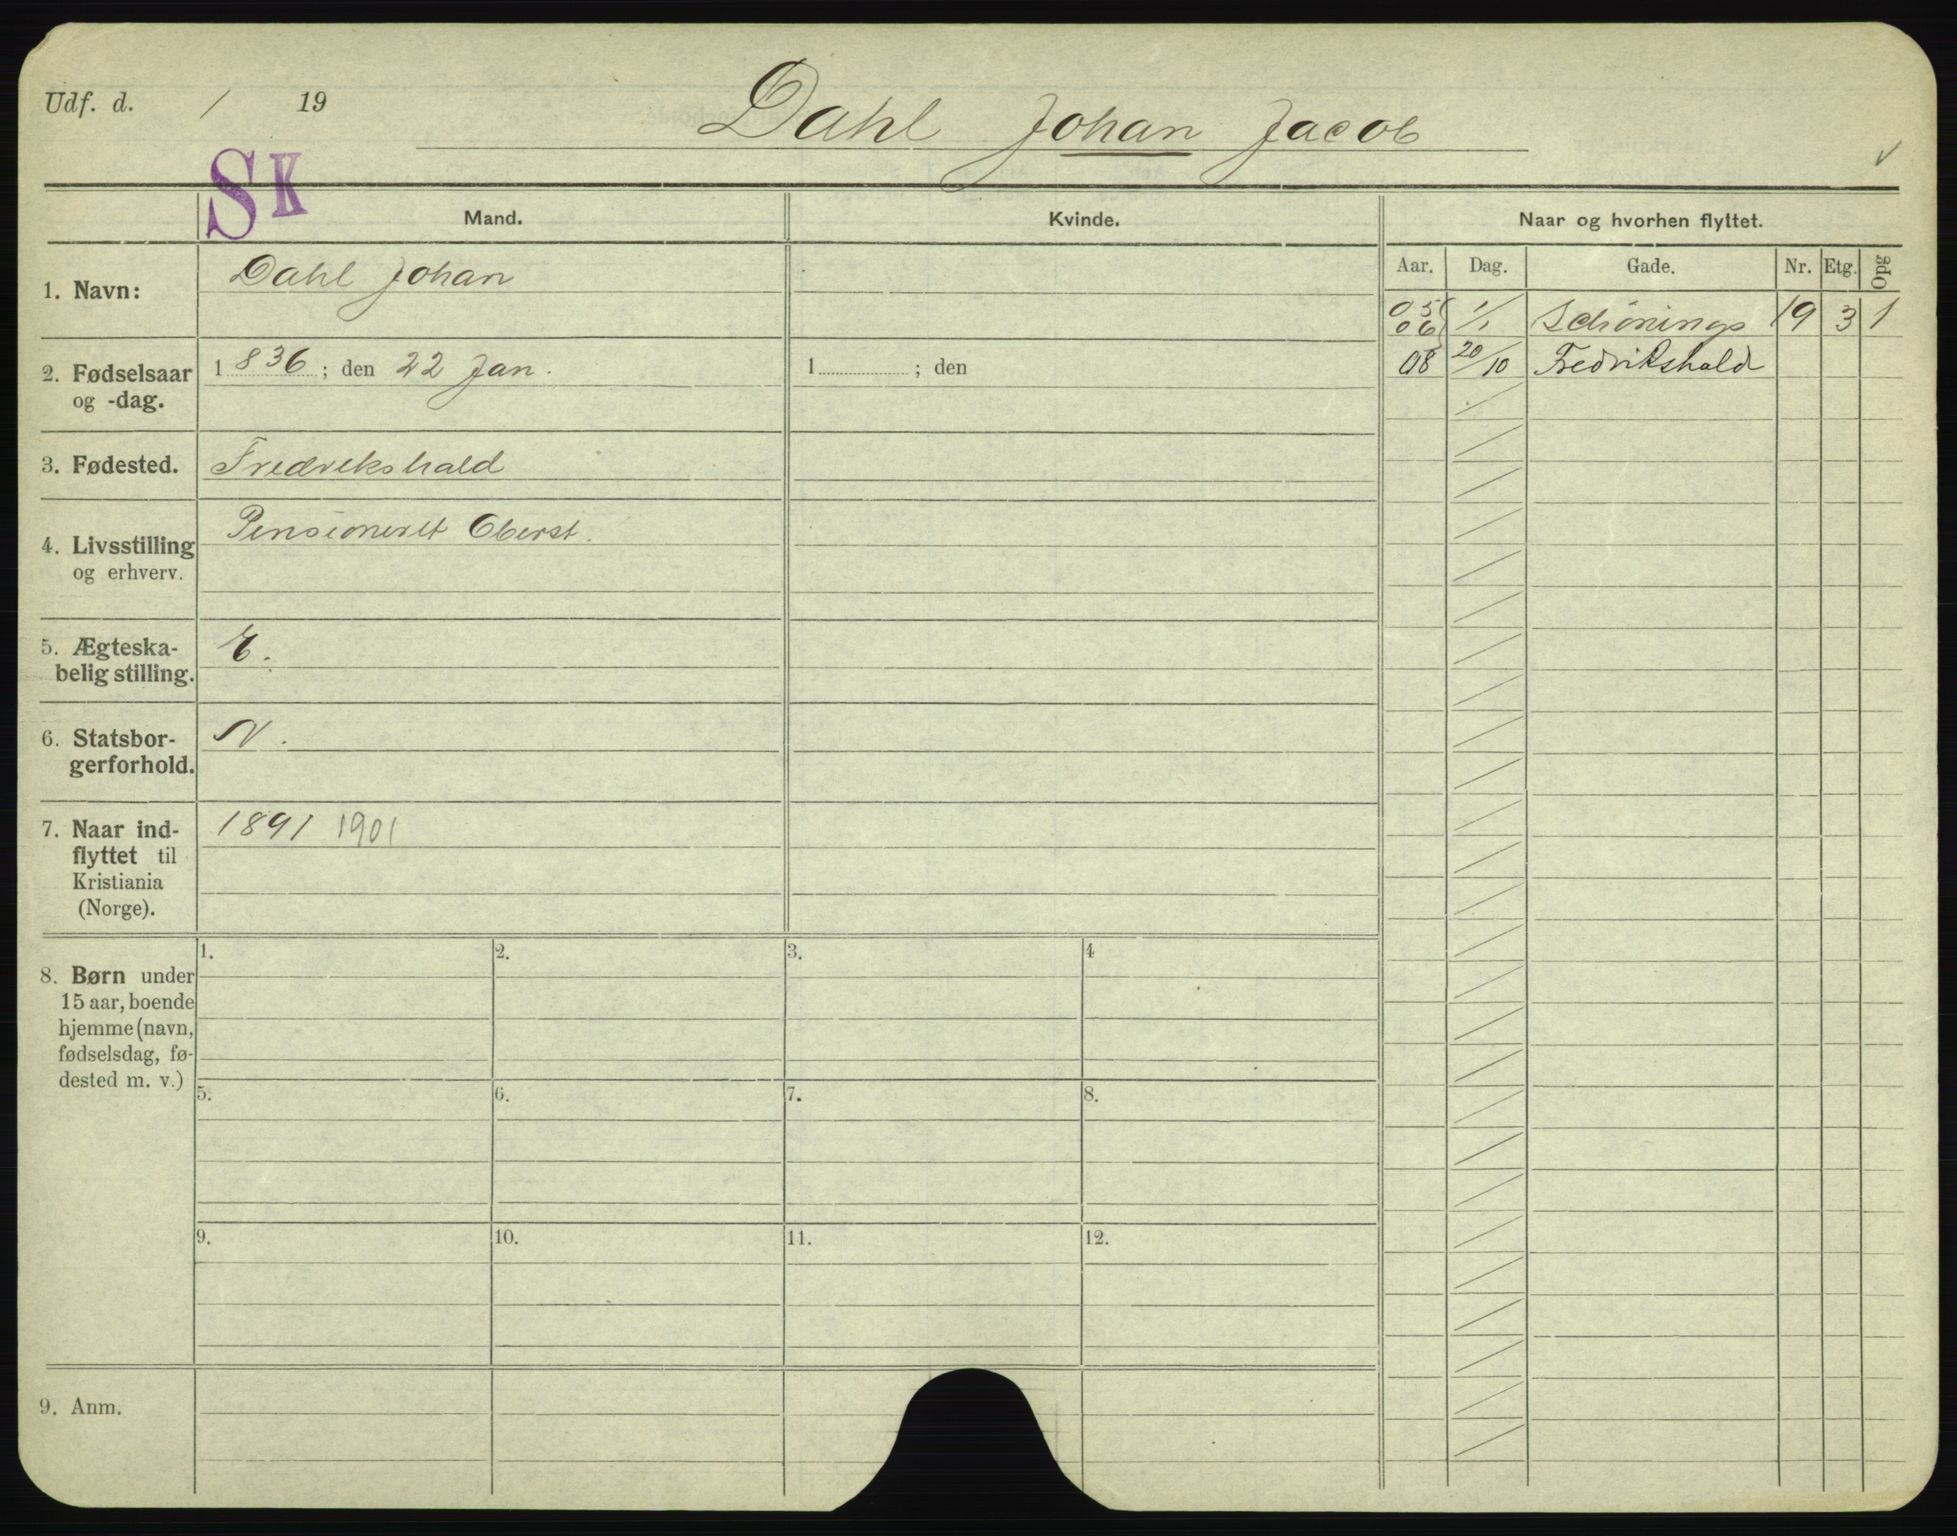 Udf. d. / 19
Dahl Johan Jacob
SK
Mand.
Kvinde.
Naar og hvorhen flyttet.
Aar. Dag. Gade. Nr. Etg. Opg
1. Navn: Dahl Johan
05 06 1/1 Schønings 19 3 1
2. Fødselsaar og -dag. 1836; den 22 Jan. 1 ; den
08 20/10 Fredrikshald
3. Fødested. Fredrikshald
4. Livsstilling og erhverv. Pensioneret Oberst.
5. Ægteska-
belig stilling. E.
6. Statsbor-
gerforhold. N.
7. Naar ind-
flyttet til
Kristiania
(Norge). 1891 1901
8. Børn under
15 aar, boende
hjemme (navn,
fødselsdag, fø-
dested m. v.)
1. 2. 3. 4
5. 6. 7. 8.
9. 10. 11. 12.
9. Anm.